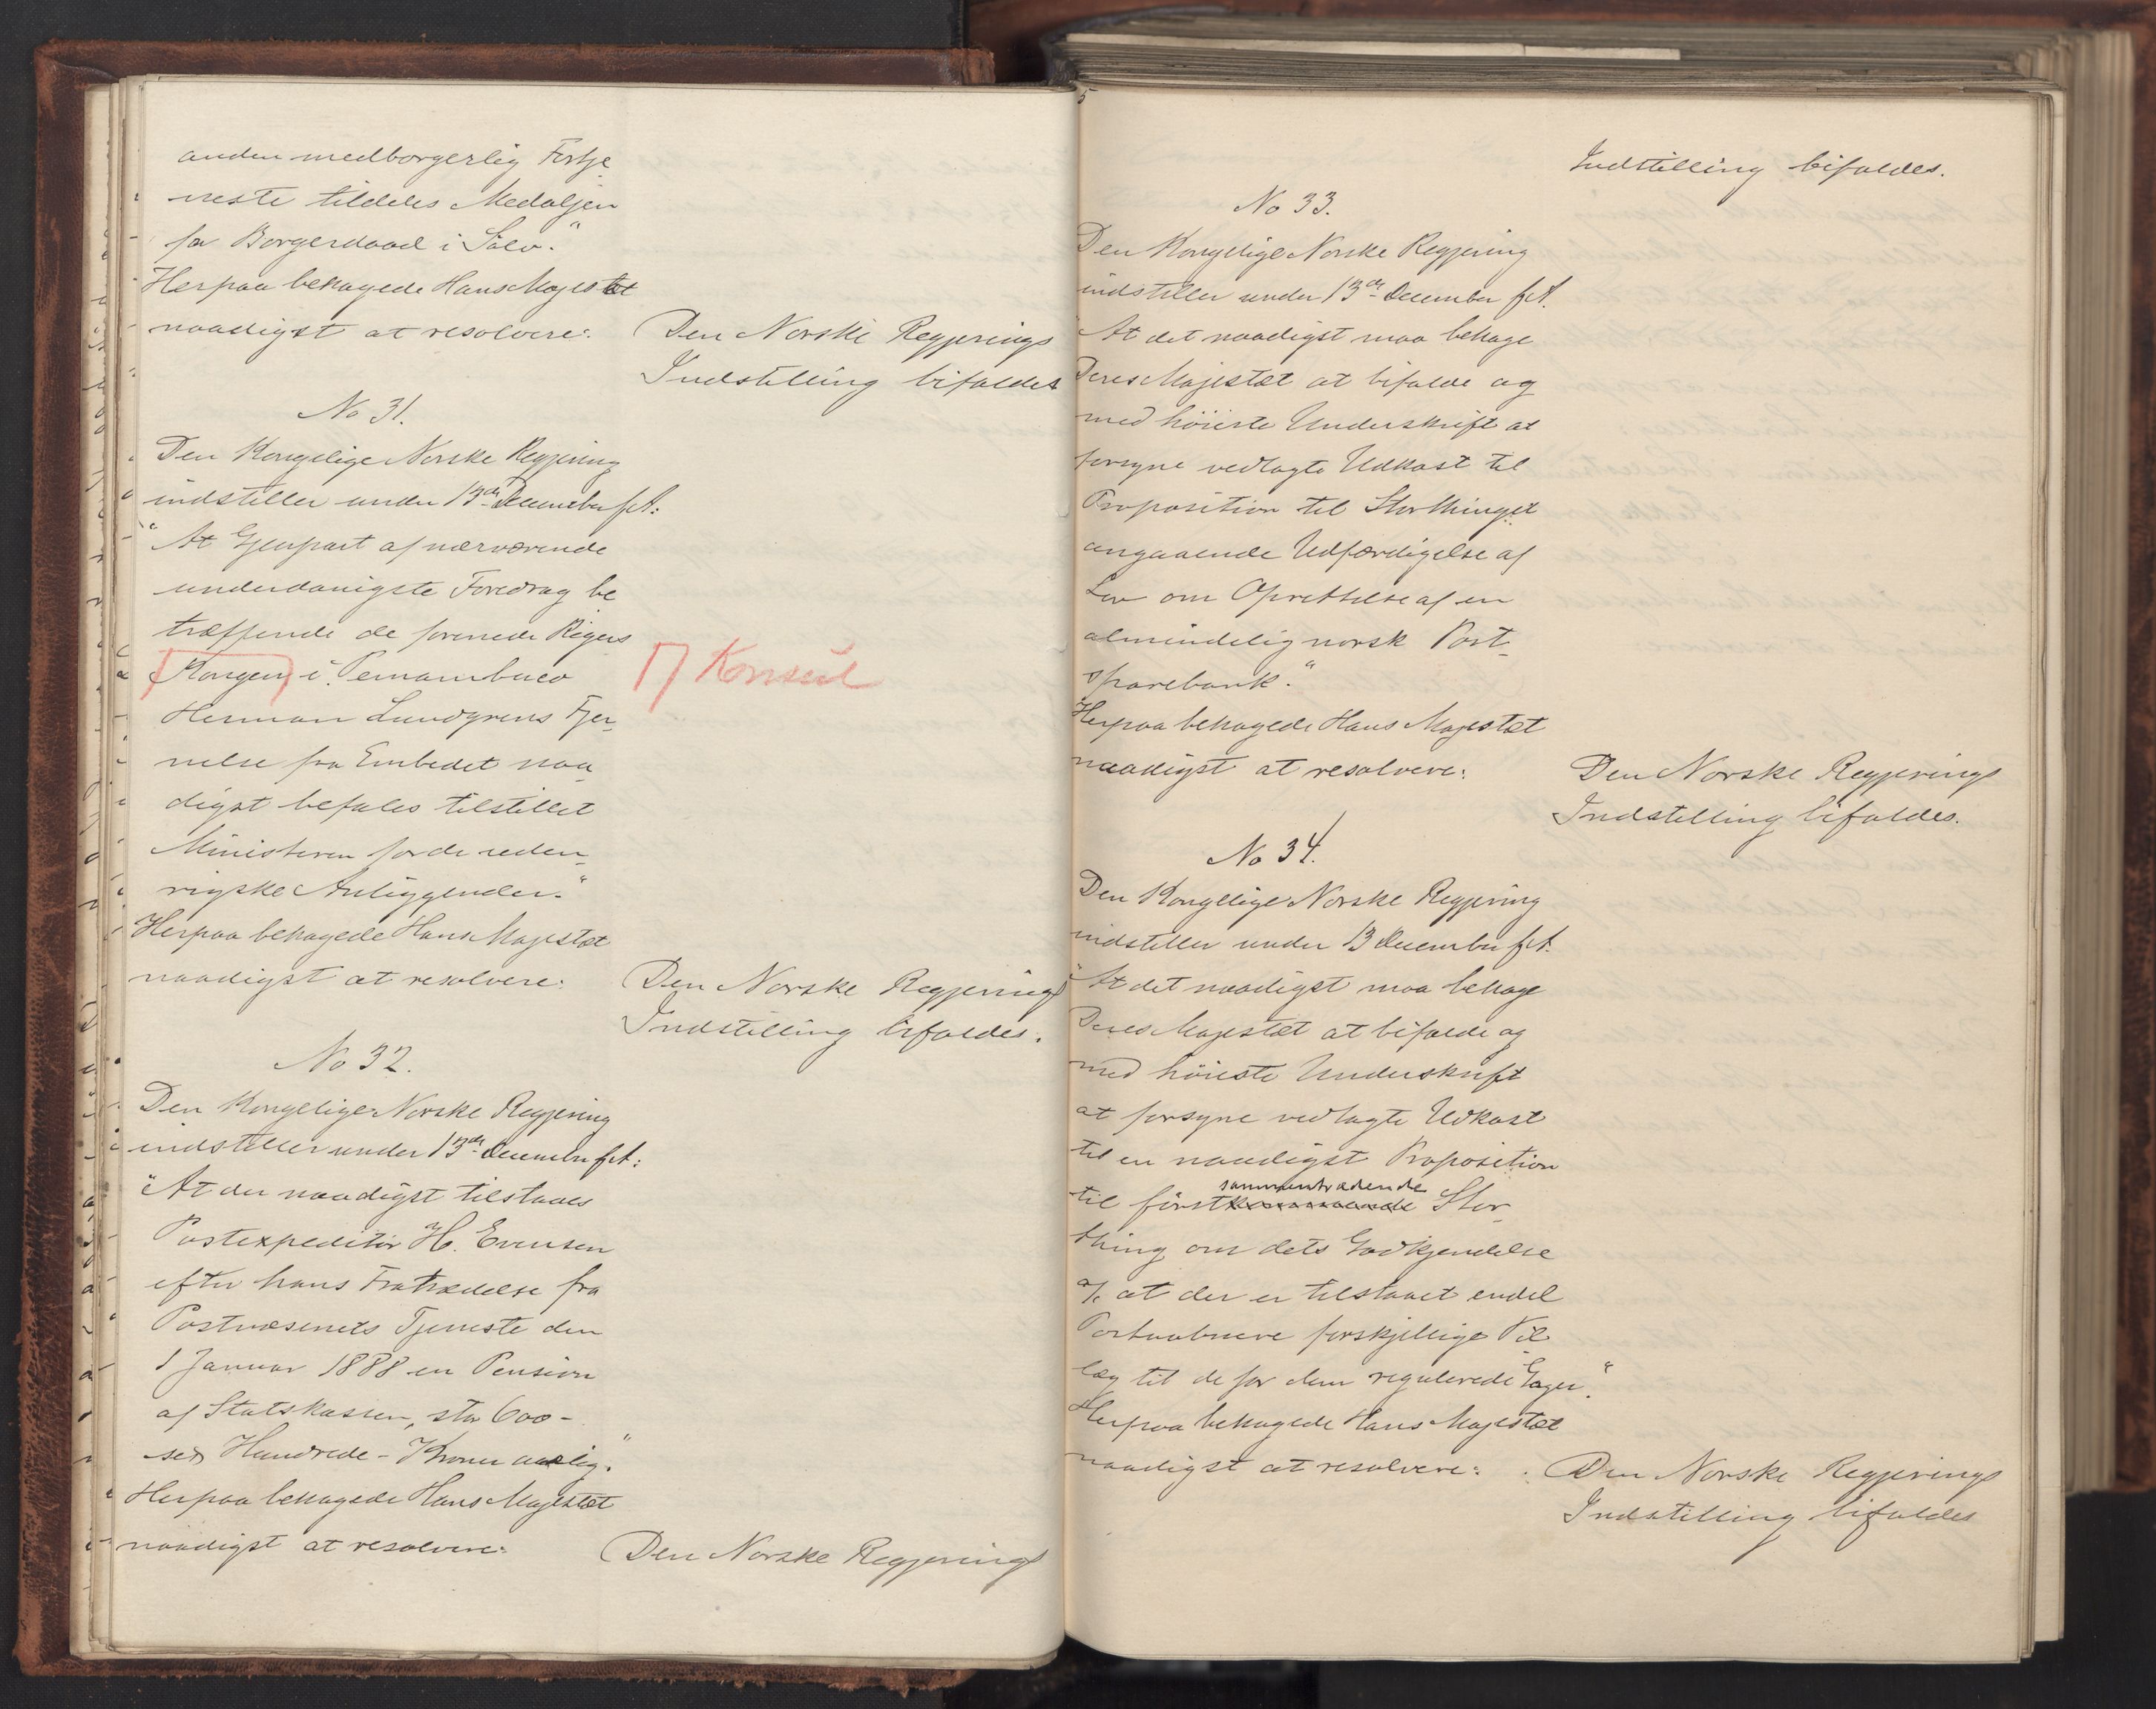 anden medborgerlig Fortje
neste tildeles Medaljen
for Borgerdaad i Sølv."
Herpaa behagede Hans Majestæt
naadigst at resolvere:
Den Norske Regjerings
Indstilling bifaldes
No 31.
Den Kongelige Norske Regjering
indstiller under 13de December f.A.:
"At Gjenpart af nærværende
underdanigste Foredrag be
træffende de forenede Rigers
Kongen i Pernambuco
Konsul
Herman Lundgrens Fjer-
nelse fra Embedet naa
digst befales tilstillet
Ministeren for de uden-
rigske Anliggender."
Herpaa behagede Hans Majestæt
naadigst at resolvere:
Den Norske Regjerings
Indstilling bifaldes.
No 32.
Den Kongelige Norske Regjering
indstiller under 13de December f.A.:
"At der naadigst tilstaaes
Postexpeditør H. Evensen
efter hans Fratrædelse fra
Postvæsenets Tjeneste den
1 Januar 1888 en Pension
af Statskassen, stor 600 -
sex Hundrede - Kroner aarlig."
Herpaa behagede Hans Majestæt
naadigst at resolvere:
Den Norske Regjerings
5
Indstilling bifaldes.
No 33.
Den Kongelige Norske Regjering
indstiller under 13de December f.A.
"At det naadigst maa behage
Deres Majestæt at bifalde og
med høieste Underskrift at
forsyne vedlagte Udkast til
Proposition til Storthinget
angaaende Udfærdigelse af
Lov om Oprettelse af en
almindelig norsk Post-
sparebank."
Herpaa behagede Hans Majestæt
naadigst at resolvere:
Den Norske Regjerings
Indstilling bifaldes.
No 34.
Den Kongelige Norske Regjering
indstiller under 13 December f.A.
"At det naadigst maa behage
Deres Majestæt at bifalde og
med høieste Underskrift
at forsyne vedlagte Udkast
til en naadigst Proposition
sammentrædende
til først Stor-
thing om dets Godkjendelse
af, at der er tilstaaet endel
Postaabnere forskjellige Til
læg til de for dem regulerede Gager."
Herpaa behagede Hans Majestæt
naadigst at resolvere:
Den Norske Regjerings
Indstilling bifaldes